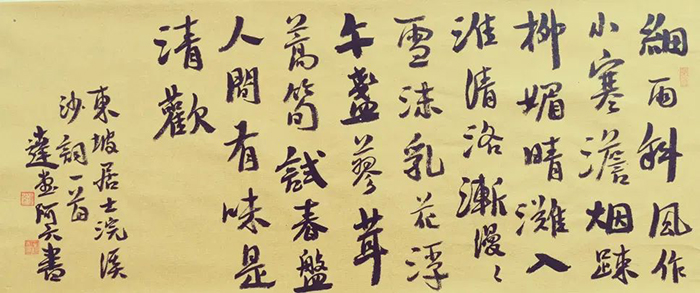 細雨斜風作
小寒澹烟踈
柳媚晴灘入
淮清洛漸漫〻
雪沫乳花浮
午盞蓼茸
蒿筍試春盤
人間有味是
清歡
東坡居士浣溪
沙詞一首
達阿書